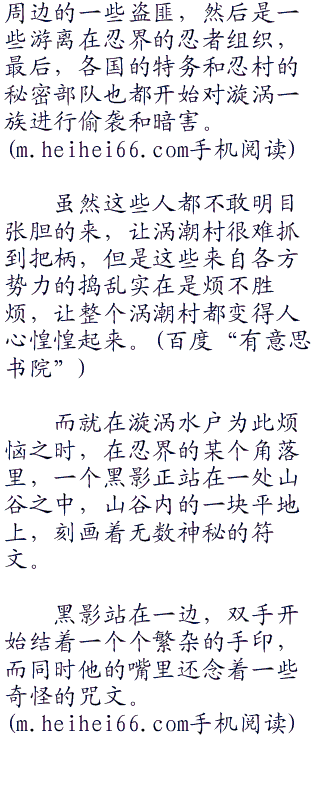 周边的一些盗匪，然后是一
些游离在忍界的忍者组织，
最后，各国的特务和忍村的
秘密部队也都开始对漩涡一
族进行偷袭和暗害。
(m.heihei66.com手机阅读)
虽然这些人都不敢明目
张胆的来，让涡潮村很难抓
到把柄，但是这些来自各方
势力的捣乱实在是烦不胜
烦，让整个涡潮村都变得人
心惶惶起来。(百度“有意思
书院”)
而就在漩涡水户为此烦
恼之时，在忍界的某个角落
里，一个黑影正站在一处山
谷之中，山谷内的一块平地
上，刻画着无数神秘的符
文。
黑影站在一边，双手开
始结着一个个繁杂的手印，
而同时他的嘴里还念着一些
奇怪的咒文。
(m.heihei66.com手机阅读)